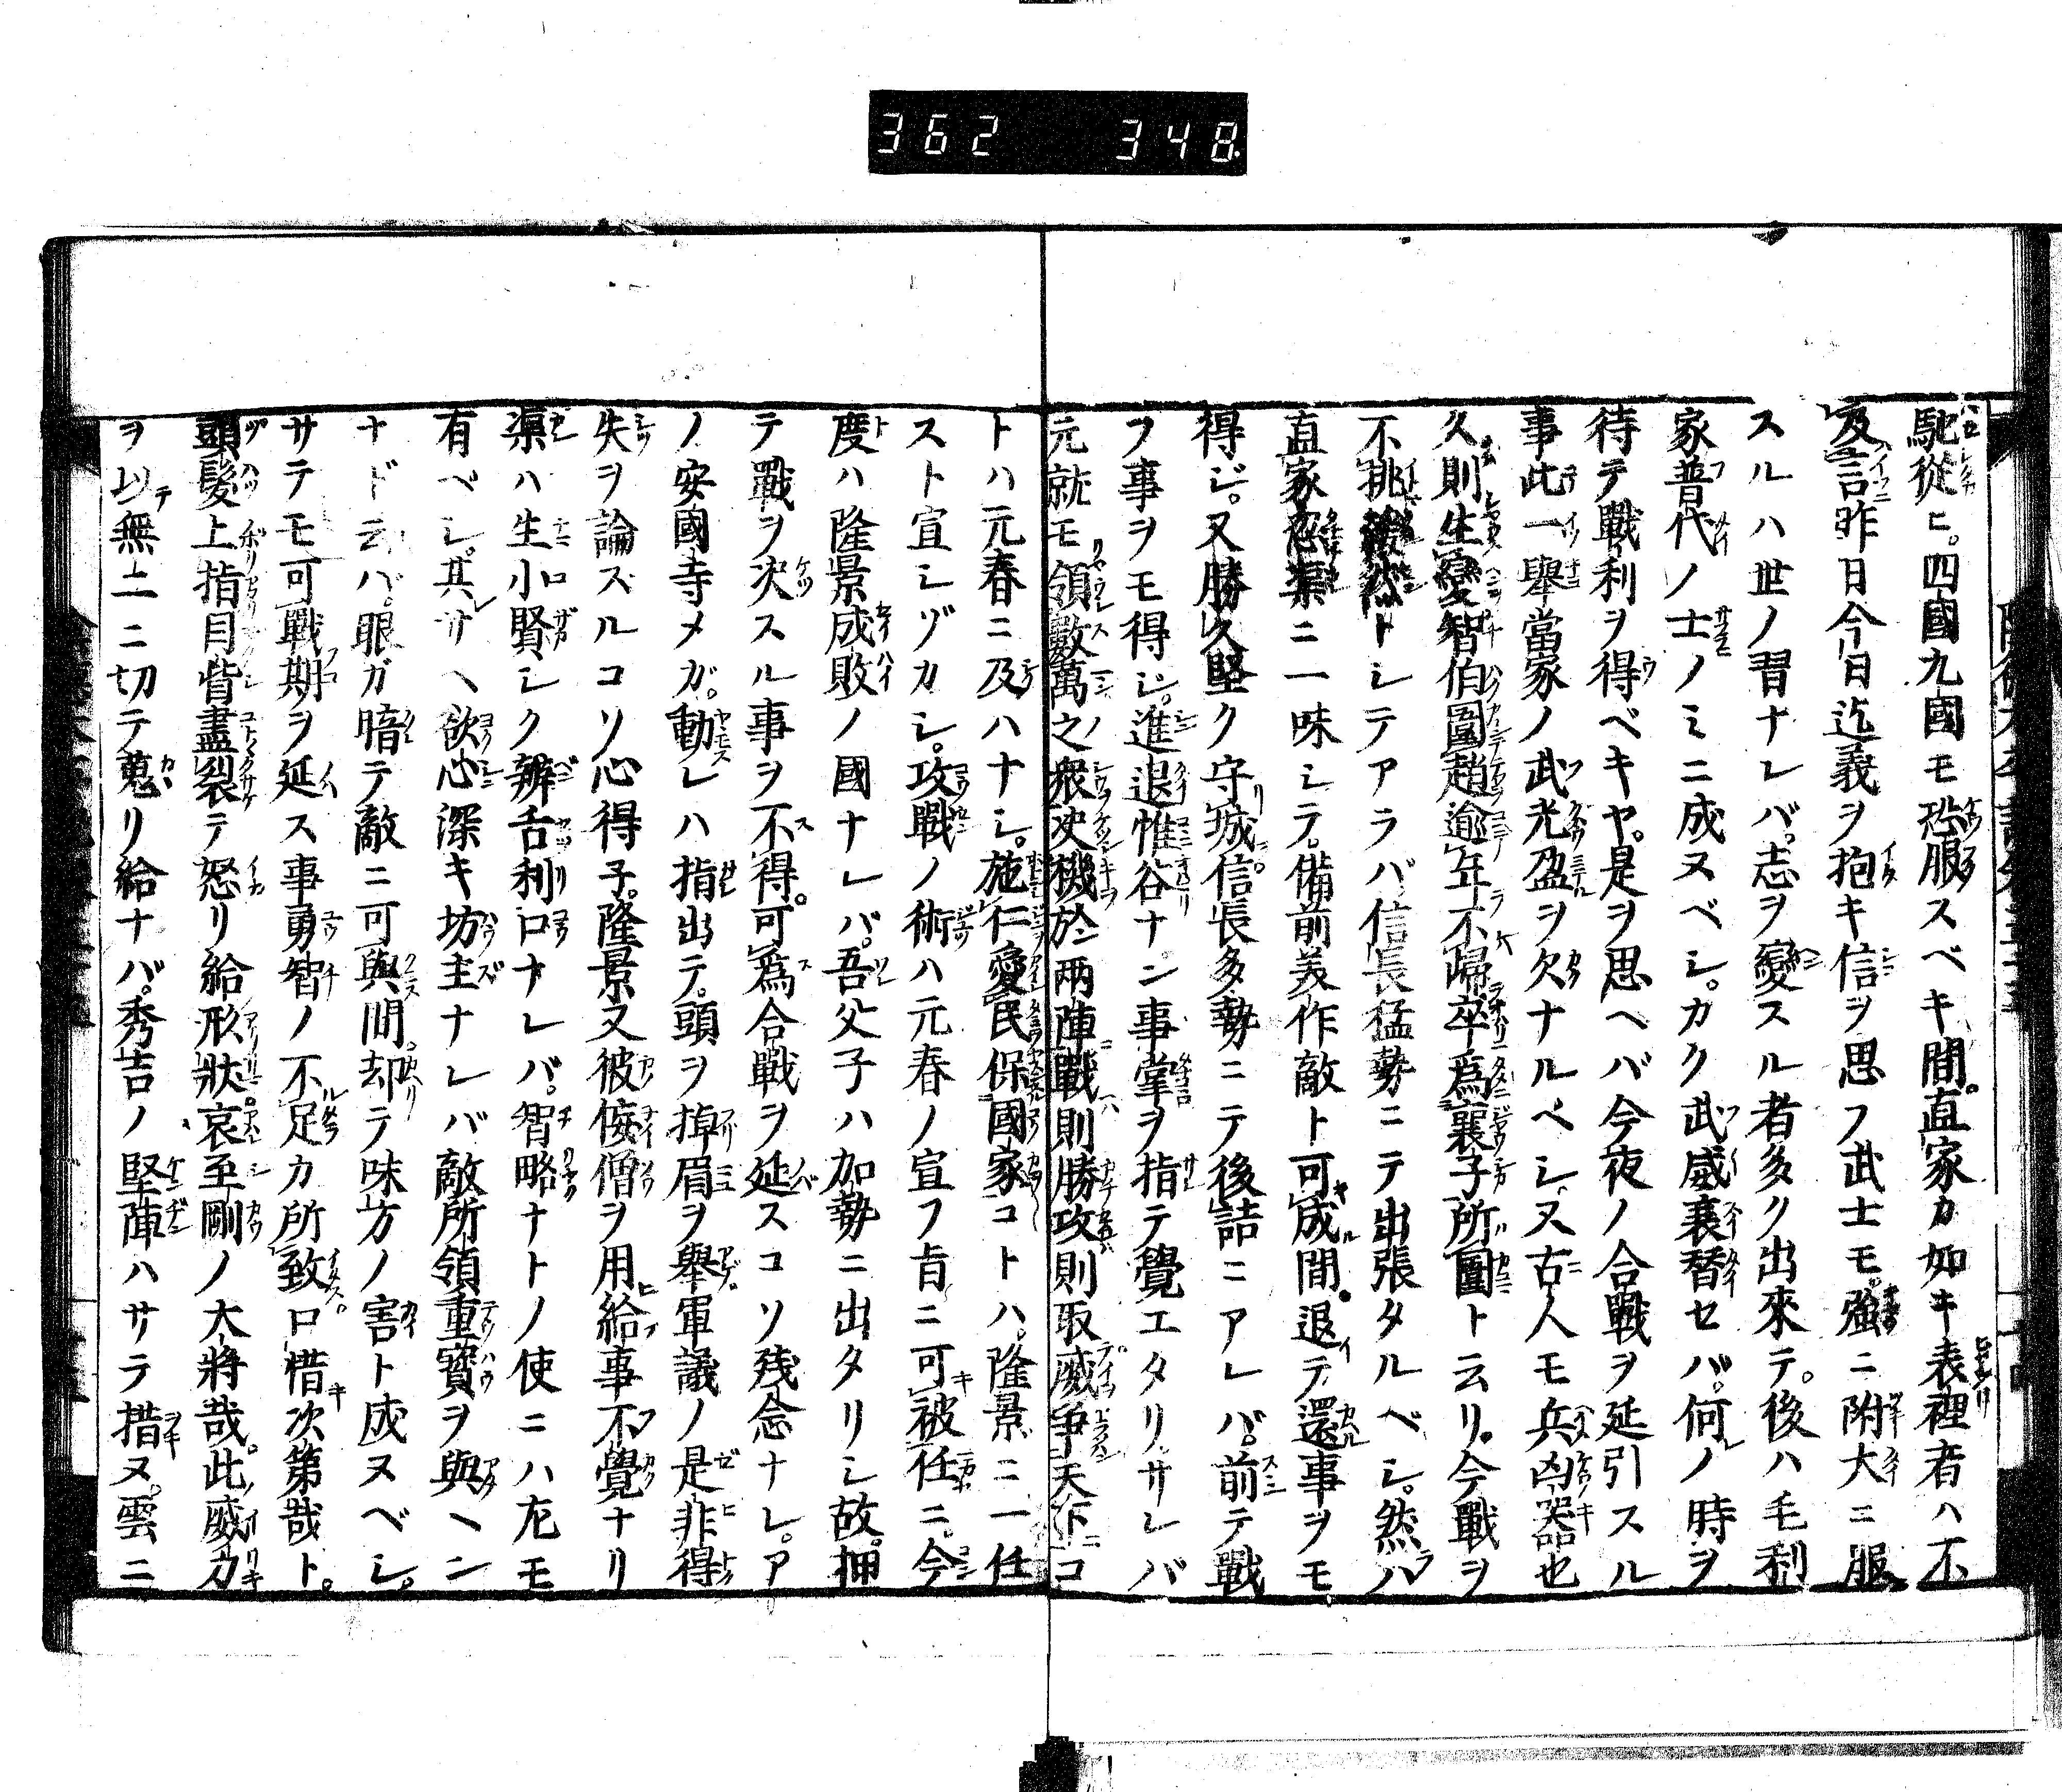 362 348
馳從ヒ。四國九國モ恐服スベキ間。直家カ如キ表裡者ハ不
及言昨日今日迄義ヲ抱キ信ヲ思フ武士モ。強ニ附大ニ服
スルハ世ノ習ナレバ。志ヲ變スル者多ク出來テ。後ハ毛利
家普代ノ士ノミニ成ヌベシ。カク武威衰替セバ。何ノ時ヲ
待テ戰利ヲ得ベキヤ。是ヲ思ヘバ今夜ノ合戰ヲ延引スル
事此一擧當家ノ武光盈ヲ欠ナルベシ。又古人モ兵凶器也
久則生變智伯圍趙逾年不歸卒爲襄子所圖ト云リ。今戰ヲ
不挑シテアラバ信長猛勢ニテ出張タルベシ。然ハ
直家忽ニ一味シテ。備前美作敵ト可成間。退テ還事ヲモ
得ジ。又勝久堅ク守城信長多勢ニテ後詰ニアレバ。前テ戰
フ事ヲモ得シ。進退惟谷ナン事掌ヲ指テ覺エタリ。サレバ
元就モ領數萬之衆決機於兩陣戰則勝攻則取威爭天下コ
トハ元春ニ及ハナシ。施仁愛民保國家コトハ。隆景ニ一任
スト宣シヅカシ。攻戰ノ術ハ元春ノ宣フ旨ニ可被任ニ。今
度ハ隆景成敗ノ國ナレバ。吾父子ハ加勢ニ出タリシ故。押
テ戰ヲ决スル事ヲ不得。可爲合戰ヲ延スコソ残念ナレ。ア
ノ安國寺メガ。動レハ指出テ。頭ヲ掉眉ヲ擧軍議ノ是非得
失ヲ論ズルコソ心得子。隆景又彼侫僧ヲ用給事不覺ナリ
渠ハ生小賢シク辨舌利口ナレバ。智略ナトノ使ニハ尤モ
有ベシ。其サヘ欲心深キ坊主ナレバ敵所領重寳ヲ與ヘン
ナドヽ云バ。眼ガ暗テ敵ニ可與間。却テ味方ノ害ト成ヌベシ。
サテモ可戰期ヲ延ス事勇智ノ不足カ所致口惜次第哉ト。
頭髪上指目眥盡裂テ怒リ給形狀。哀至剛ノ大將哉。此威力
ヲ以無二ニ切テ蒐リ給ナバ。秀吉ノ堅陣ハサテ措ヌ。雲ニ